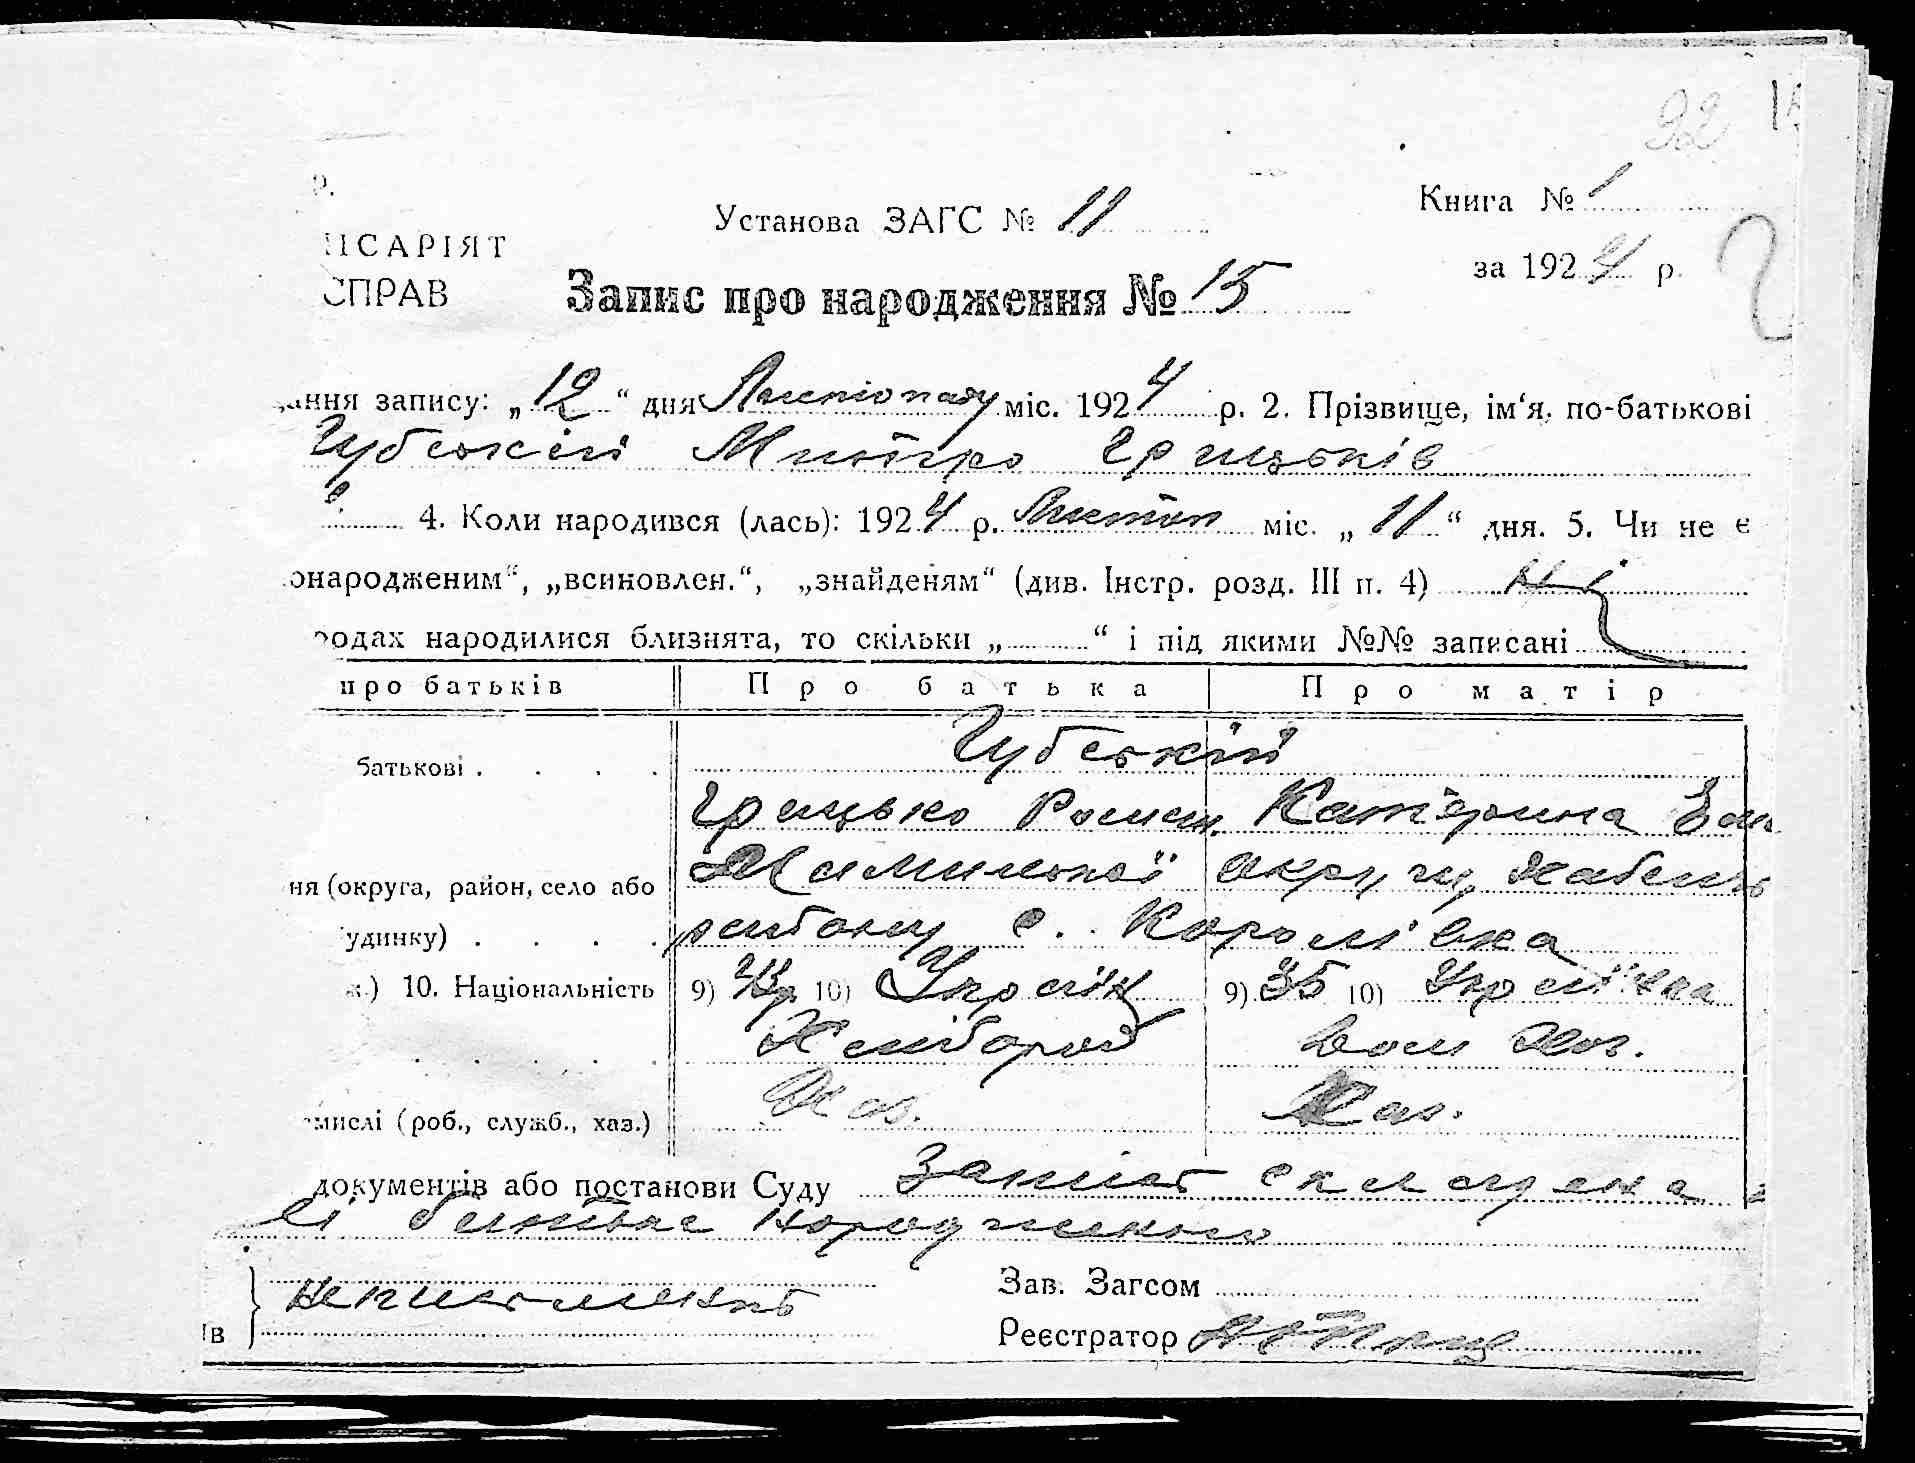 92
Р.
Установа ЗАГС № 11
Книга № 1
ІІСАРІЯТ
за 1924 р.
СПРАВ
Запис про народження № 15
ання запису: „12“ дня Листопаду міс. 1924 р. 2. Прізвище, ім‘я, по-батькові
Губський Митро Грицьків
4. Коли народився (лась): 1924 р. Листоп міс. „11“ дня. 5. Чи не є
онародженим“, „всиновлен.“, „знайденям“ (див. Інстр. розд. III п. 4) ні
родах народилися близнята, то скільки „ “ і під якими №№ записані
про батьків Про батька Про матір
батькові Губський
Грицько Роман. Катерина
ня (округа, район, село або округи
удинку) району с. Королівка
ж.) 10. Національність 9) 10) Україн 9) 35 10) Україінка
Хлібороб Дом Хоз.
Хаз. Хаз.
мислі (роб., служб., хаз.)
документів або постанови Суду Запись
неписьмений
Зав. Загсом
ів
Реєстратор